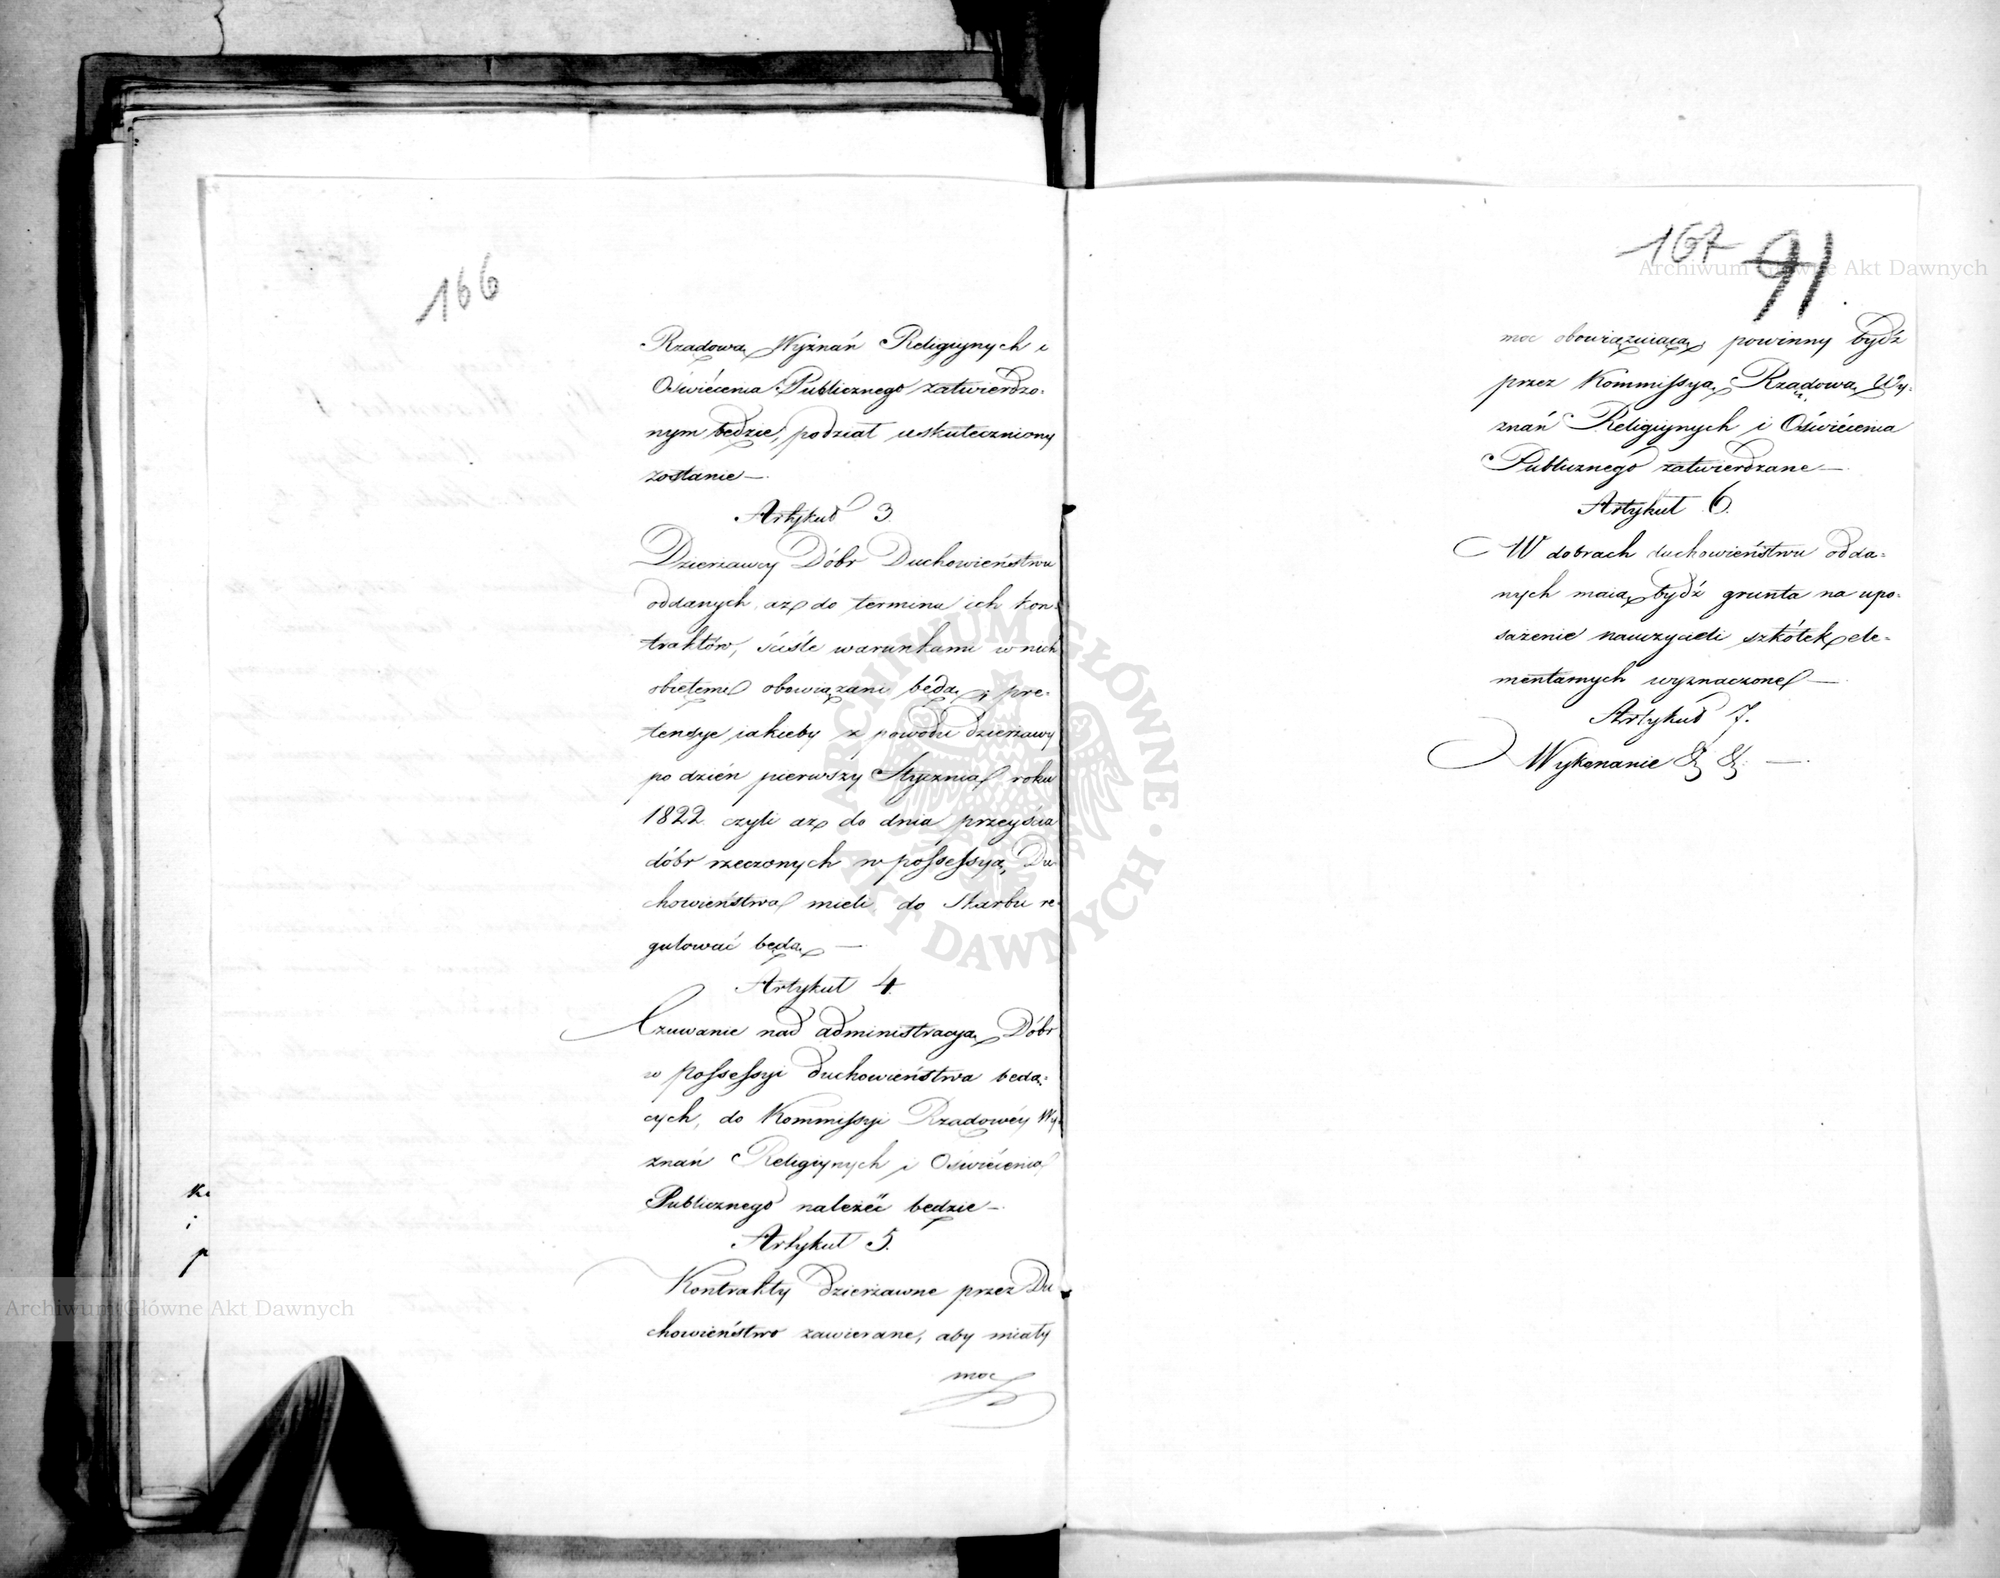 166
Rządową Wyznań Religiynych i
Oświécenia Publicznego zatwierdzo-
nym będzie, podział uskuteczniony
zostanie —
Artykuł 3.
Dzierżawcy Dóbr Duchowieństwu
oddanych, aż do terminu ich kon-
traktów, ściśle warunkami w nich
obiętemi obowiązani będą, i pre-
tensye iakieby z powodu dzierżawy
po dzień pierwszy Stycznia roku
1822 czyli aż do dnia przeyścia
dóbr rzeczonych w possessyą Du-
chowieństwa mieli, do Skarbu re-
gulować będą —
Artykuł 4.
Czuwanie nad administracyą Dóbr
w possessyi duchowieństwa będą-
cych, do Kommissyi Rządowéy Wy-
znań Religiynych i Oświécenia
Publicznego należéć będzie —
Artykuł 5.
Kontrakty dzierżawne przez Du-
chowieństwo zawierane, aby miały
moc
167 91
moc obowiązuiącą, powinny bydź
przez Kommissyą Rządową Wy-
znań Religiynych i Oświécenia
Publicznego zatwierdzane —
Artykuł 6.
W dobrach duchowieństwu odda-
nych maią bydź grunta na upo-
sażenie nauczycieli szkółek ele-
mentarnych wyznaczone —
Artykuł 7.
Wykonanie & & —
Archiwum Główne Akt Dawnych
ARCHIWUM GŁÓWNE AKT DAWNYCH
Archiwum Główne Akt Dawnych